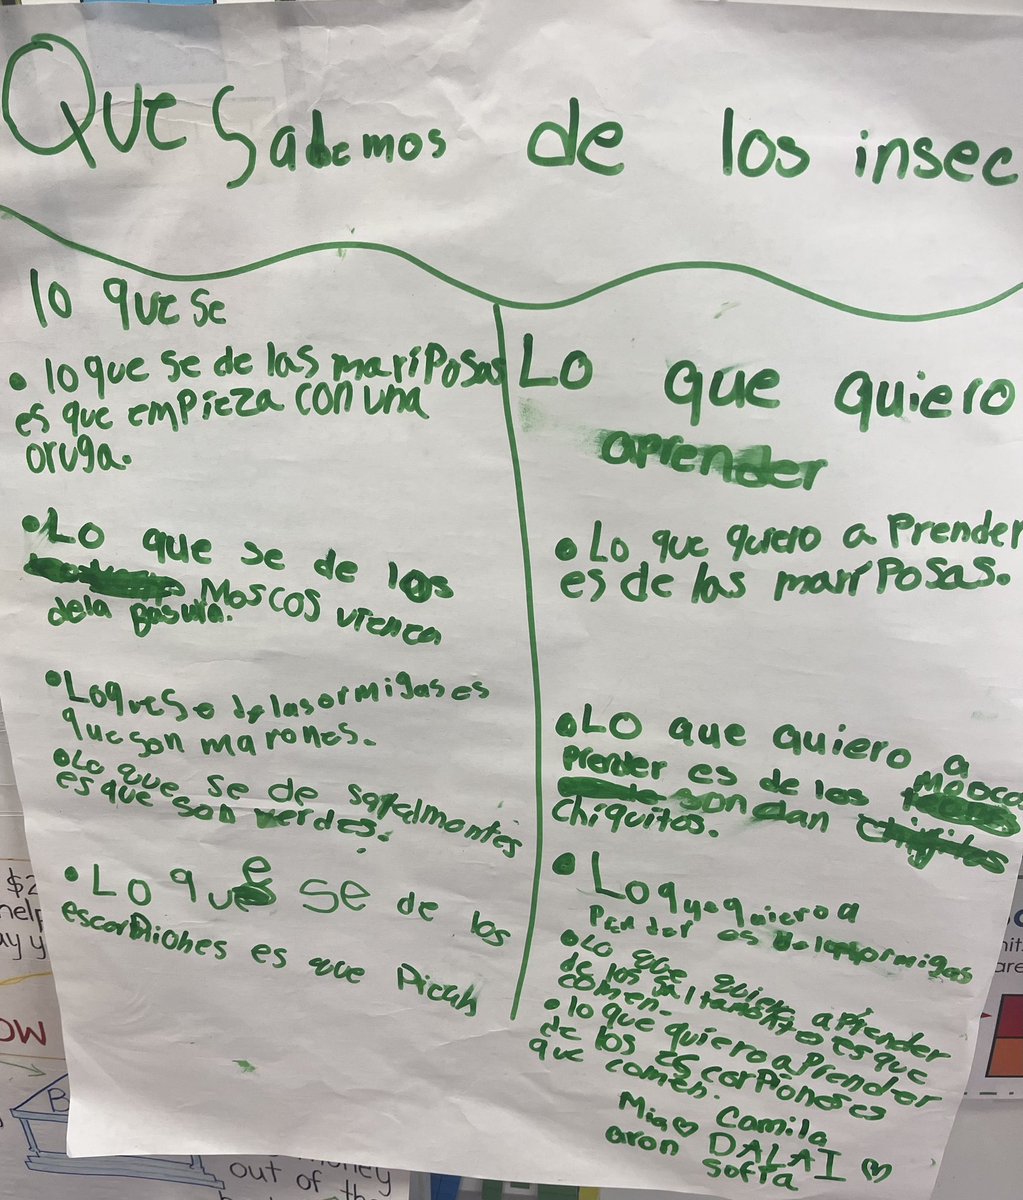 Que Sabemos de los insec
lo que se
• lo que se de las mariposas
es que empieza con una
oruga.
• Lo que se de los
Moscos vienen
dela basura.
• Lo que Se de las ormigas es
que son marones.
• Lo que se de saltelmontes
es que son verdes.
• Lo que se de los
escorpiones es que Pican
Lo que quiero
aprender
• Lo que quero a Prender
es de las mariposas.
• Lo que quiero a
Prender es de los Mosco
son dan
Chiquitos.
• Lo que quiero a
Prender es de las ormigas
• Lo que quiero aprender
de los es que
comen.
• lo que quiero a Prender
de los escorpiones es
que comen.
Mia ♡ Camila
aron DALAI ♡
Sofia
$2
help
ay y
OW
B
out of the
money